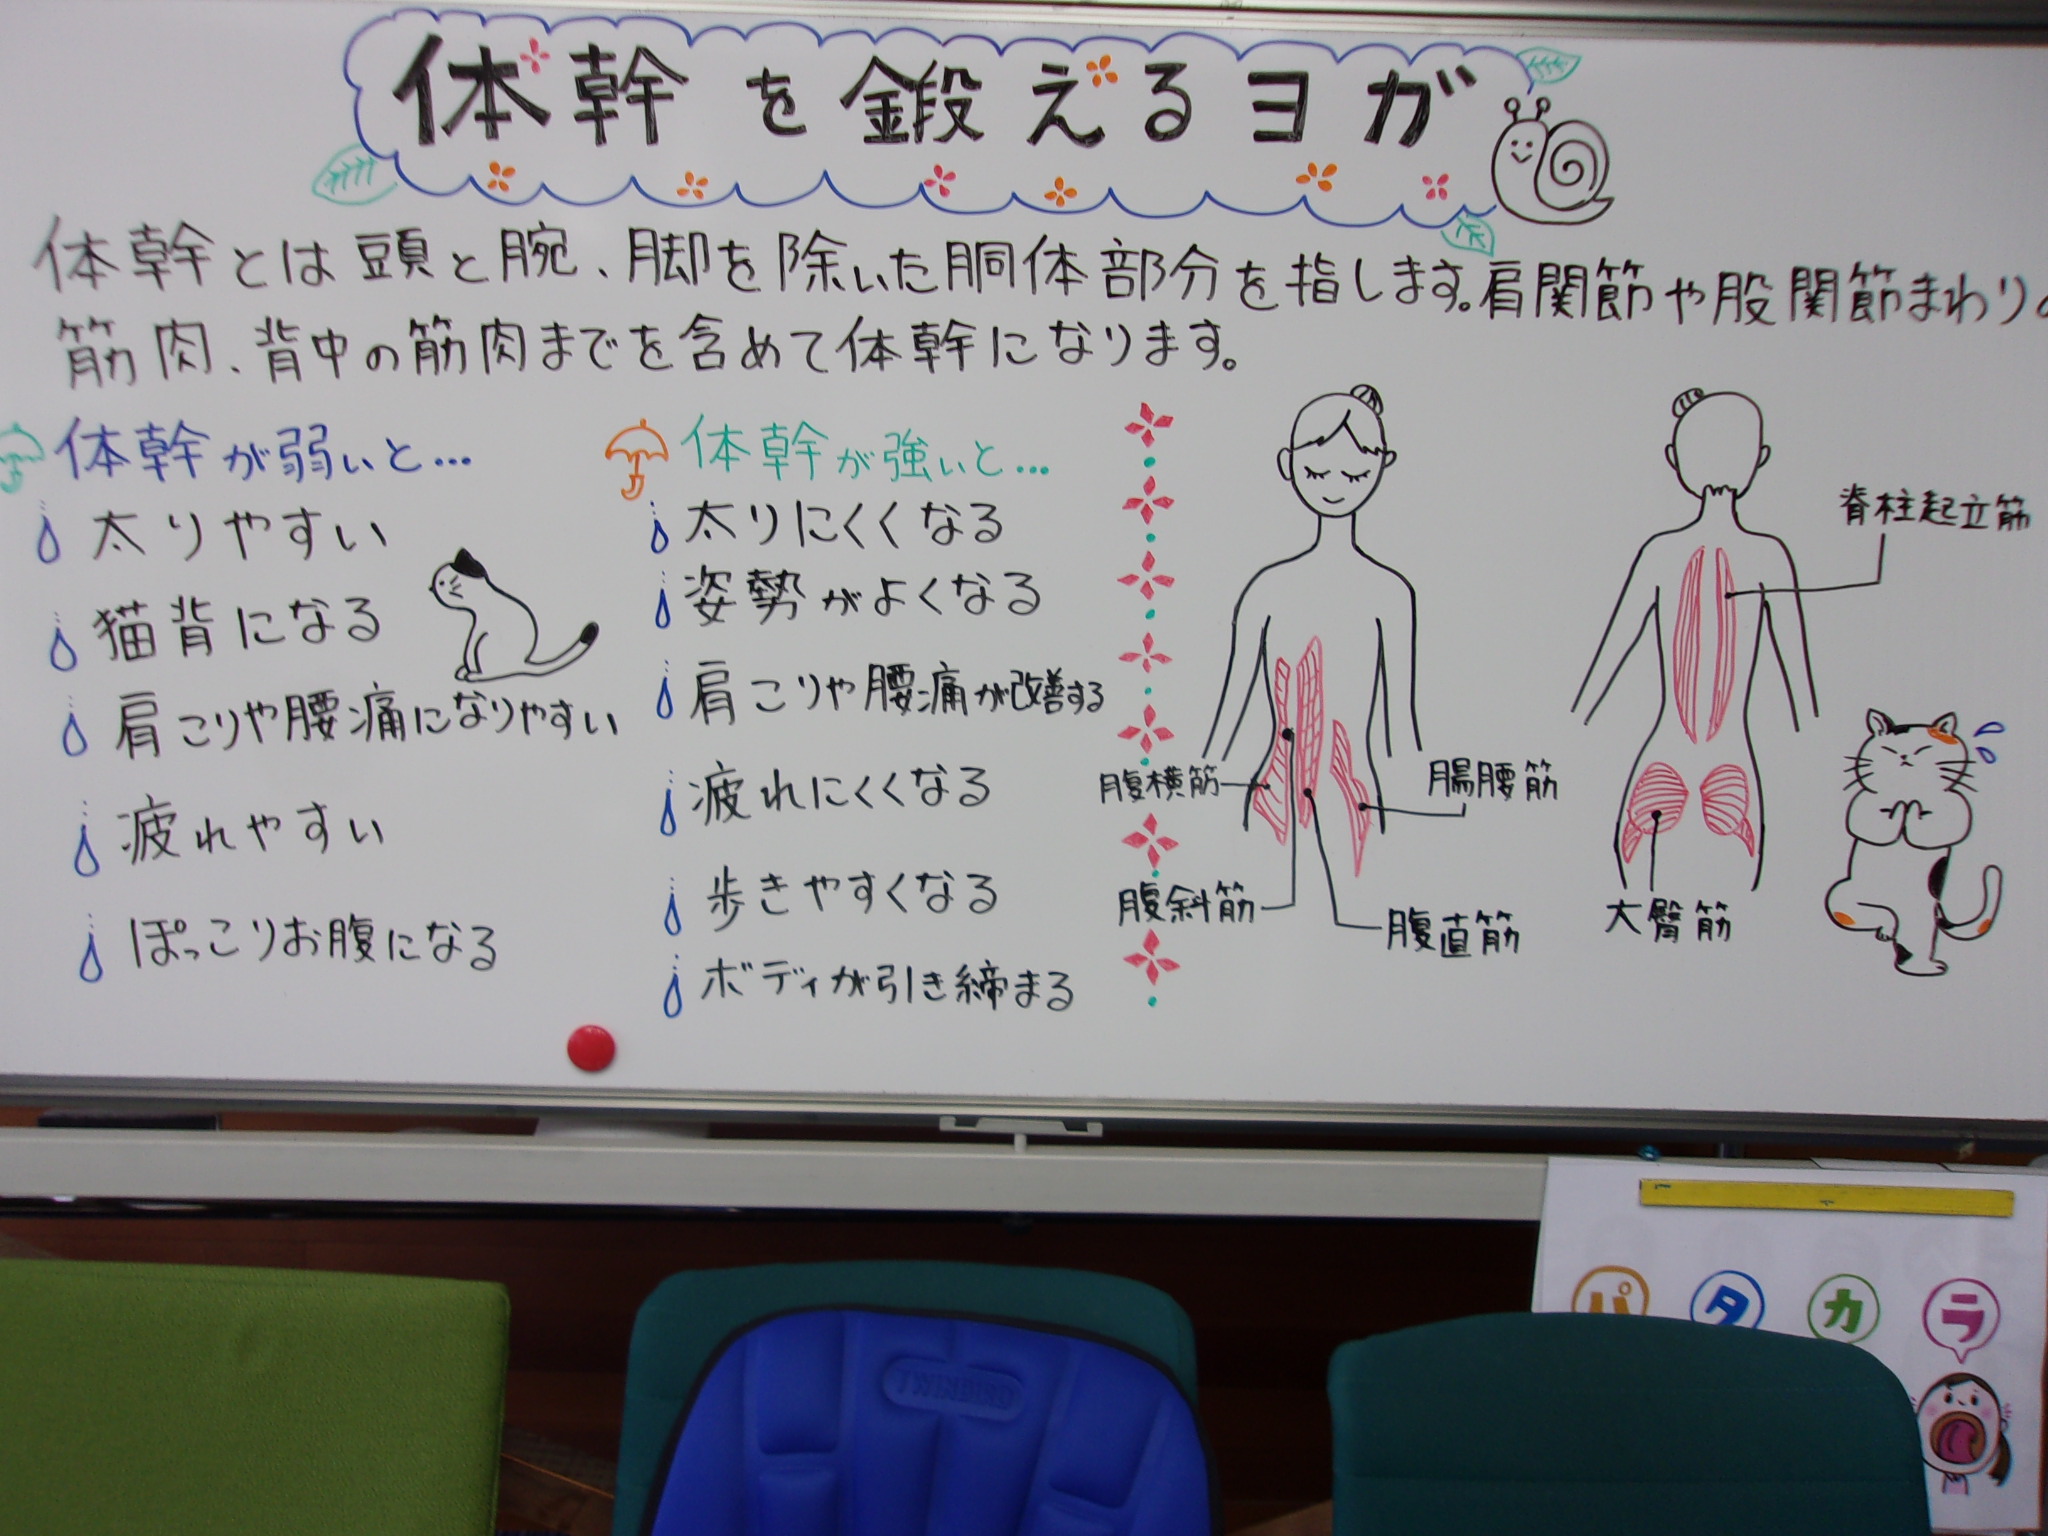 体幹を鍛えるヨガ
体幹とは頭と腕、脚を除いた胴体部分を指します。肩関節や股関節まわりの
筋肉、背中の筋肉までを含めて体幹になります。
体幹が弱いと…
太りやすい
猫背になる
肩こりや腰痛になりやすい
疲れやすい
ぽっこりお腹になる
体幹が強いと…
太りにくくなる
姿勢がよくなる
肩こりや腰痛が改善する
疲れにくくなる
歩きやすくなる
ボディが引き締まる
腹横筋
腸腰筋
腹斜筋
腹直筋
脊柱起立筋
大臀筋
パ タ カ ラ